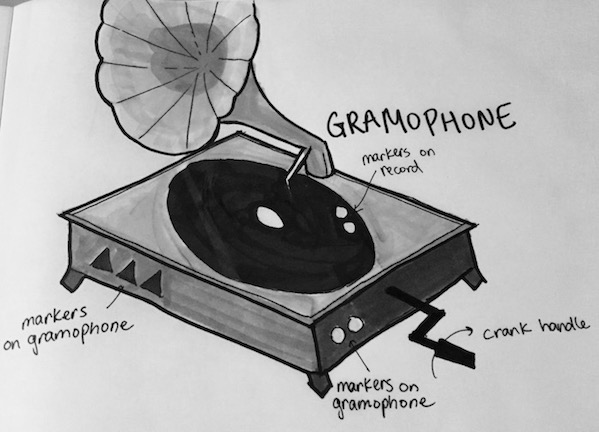 GRAMOPHONE
markers on
record
markers
on gramophone
crank handle
markers on
gramophone